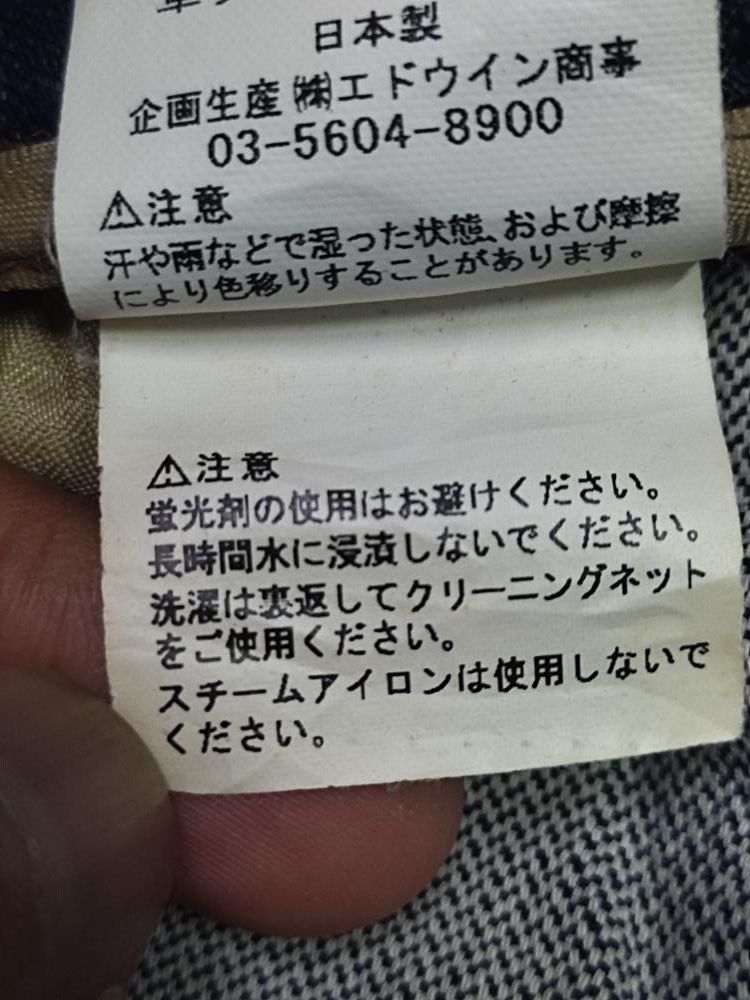 日本製
企画生産㈱エドウイン商事
03-5604-8900
⚠注意
汗や雨などで湿った状態、および摩擦
により色移りすることがあります。
⚠注意
蛍光剤の使用はお避けください。
長時間水に浸漬しないでください。
洗濯は裏返してクリーニングネット
をご使用ください。
スチームアイロンは使用しないで
ください。